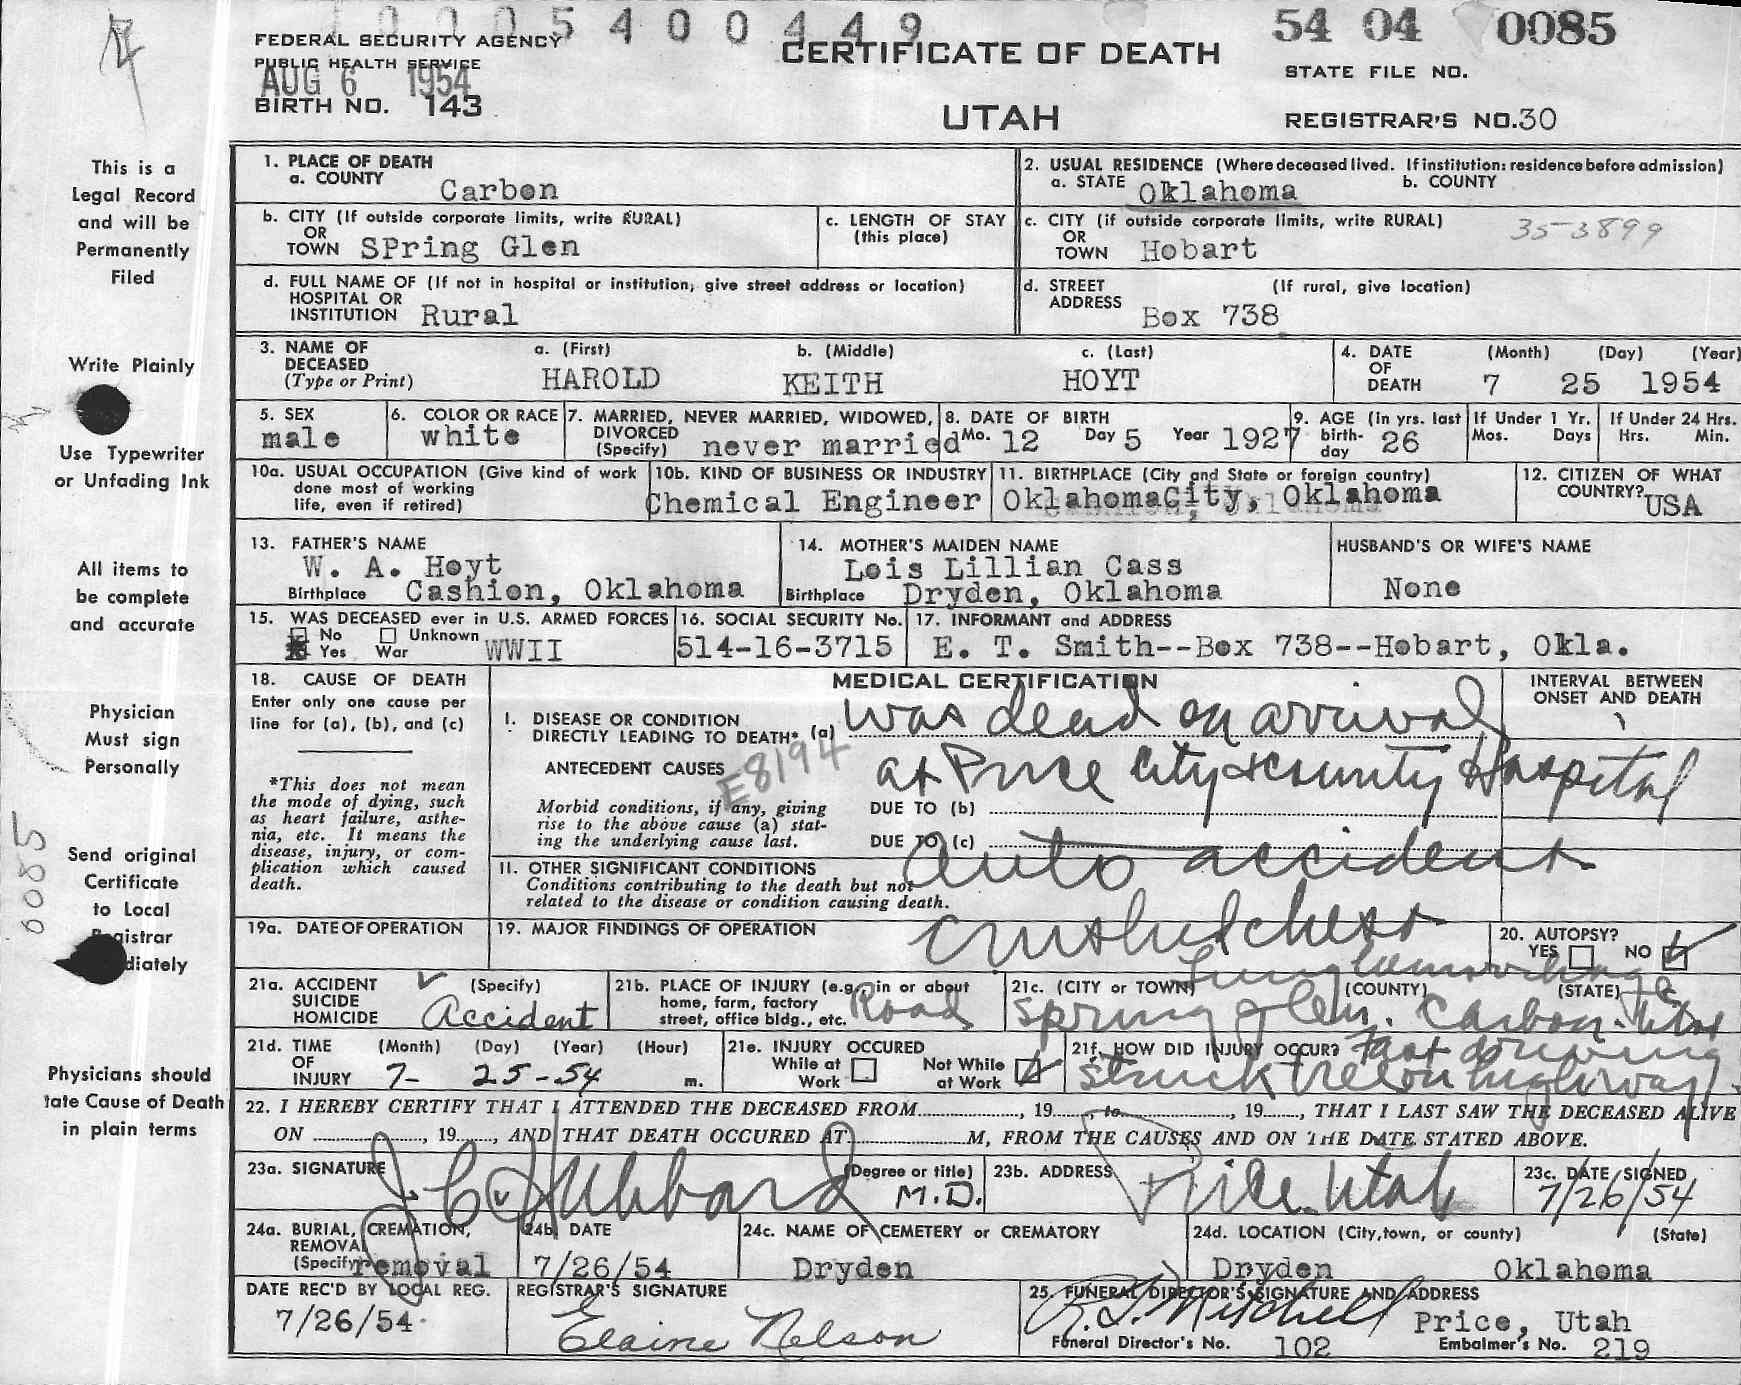 10005400449
54 04 0085
FEDERAL SECURITY AGENCY
PUBLIC HEALTH SERVICE
AUG 6 1954
BIRTH NO. 143
CERTIFICATE OF DEATH
UTAH
STATE FILE NO.
REGISTRAR'S NO. 30
This is a
Legal Record
and will be
Permanently
Filed
Write Plainly
Use Typewriter
or Unfading Ink
All items to
be complete
and accurate
Physician
Must sign
Personally
0085
Send original
Certificate
to Local
Registrar
diately
Physicians should
tate Cause of Death
in plain terms
1. PLACE OF DEATH
a. COUNTY Carbon
2. USUAL RESIDENCE (Where deceased lived. If institution: residence before admission)
a. STATE Oklahoma b. COUNTY
b. CITY (If outside corporate limits, write RURAL)
OR
TOWN SPring Glen
c. LENGTH OF STAY
(this place)
c. CITY (if outside corporate limits, write RURAL)
OR
TOWN Hobart
35-3899
d. FULL NAME OF (If not in hospital or institution, give street address or location)
HOSPITAL OR
INSTITUTION Rural
d. STREET (If rural, give location)
ADDRESS
Box 738
3. NAME OF a. (First) b. (Middle) c. (Last)
DECEASED
(Type or Print) HAROLD KEITH HOYT
4. DATE (Month) (Day) (Year)
OF
DEATH 7 25 1954
5. SEX
male
6. COLOR OR RACE
white
7. MARRIED, NEVER MARRIED, WIDOWED,
DIVORCED
(Specify) never married
8. DATE OF BIRTH
Mo. 12 Day 5 Year 1927
9. AGE (In yrs. last
birth-
day 26
If Under 1 Yr.
Mos. Days
If Under 24 Hrs.
Hrs. Min.
10a. USUAL OCCUPATION (Give kind of work
done most of working
life, even if retired)
10b. KIND OF BUSINESS OR INDUSTRY
Chemical Engineer
11. BIRTHPLACE (City and State or foreign country)
OklahomaCity, Oklahoma
12. CITIZEN OF WHAT
COUNTRY? USA
13. FATHER'S NAME
W. A. Hoyt
Birthplace Cashion, Oklahoma
14. MOTHER'S MAIDEN NAME
Lois Lillian Cass
Birthplace Dryden, Oklahoma
HUSBAND'S OR WIFE'S NAME
None
15. WAS DECEASED ever in U.S. ARMED FORCES
No Unknown
Yes War WWII
16. SOCIAL SECURITY No.
514-16-3715
17. INFORMANT and ADDRESS
E. T. Smith--Box 738--Hobart, Okla.
18. CAUSE OF DEATH
Enter only one cause per
line for (a), (b), and (c)
*This does not mean
the mode of dying, such
as heart failure, asthe-
nia, etc. It means the
disease, injury, or com-
plication which caused
death.
MEDICAL CERTIFICATION
INTERVAL BETWEEN
ONSET AND DEATH
I. DISEASE OR CONDITION
DIRECTLY LEADING TO DEATH* (a) was dead on arrival
ANTECEDENT CAUSES at Price City & County Hospital
E8194
Morbid conditions, if any, giving
rise to the above cause (a) stat-
ing the underlying cause last.
DUE TO (b)
DUE TO (c)
auto accident
II. OTHER SIGNIFICANT CONDITIONS
Conditions contributing to the death but not
related to the disease or condition causing death.
19a. DATE OF OPERATION
19. MAJOR FINDINGS OF OPERATION
crushed chest
lung hemorrhage
20. AUTOPSY?
YES NO
21a. ACCIDENT (Specify)
SUICIDE
HOMICIDE Accident
21b. PLACE OF INJURY (e.g., in or about
home, farm, factory
street, office bldg., etc. Road
21c. (CITY or TOWN) (COUNTY) (STATE)
Spring Glen. Carbon. Utah
21d. TIME (Month) (Day) (Year) (Hour)
OF
INJURY 7- 25-54 m.
21e. INJURY OCCURED
While at Not While
Work at Work
21f. HOW DID INJURY OCCUR? Fast driving
struck tree on highway.
22. I HEREBY CERTIFY THAT I ATTENDED THE DECEASED FROM, 19, to, 19, THAT I LAST SAW THE DECEASED ALIVE
ON, 19, AND THAT DEATH OCCURED AT M, FROM THE CAUSES AND ON THE DATE STATED ABOVE.
23a. SIGNATURE (Degree or title)
J. C. Hubbard M.D.
23b. ADDRESS
Price. Utah
23c. DATE SIGNED
7/26/54
24a. BURIAL, CREMATION,
REMOVAL
(Specify) removal
24b. DATE
7/26/54
24c. NAME OF CEMETERY or CREMATORY
Dryden
24d. LOCATION (City, town, or county) (State)
Dryden Oklahoma
DATE REC'D BY LOCAL REG.
7/26/54
REGISTRAR'S SIGNATURE
Elaine Nelson
25. FUNERAL DIRECTOR'S SIGNATURE AND ADDRESS
Mitchell Price, Utah
Funeral Director's No. 102 Embalmer's No. 219